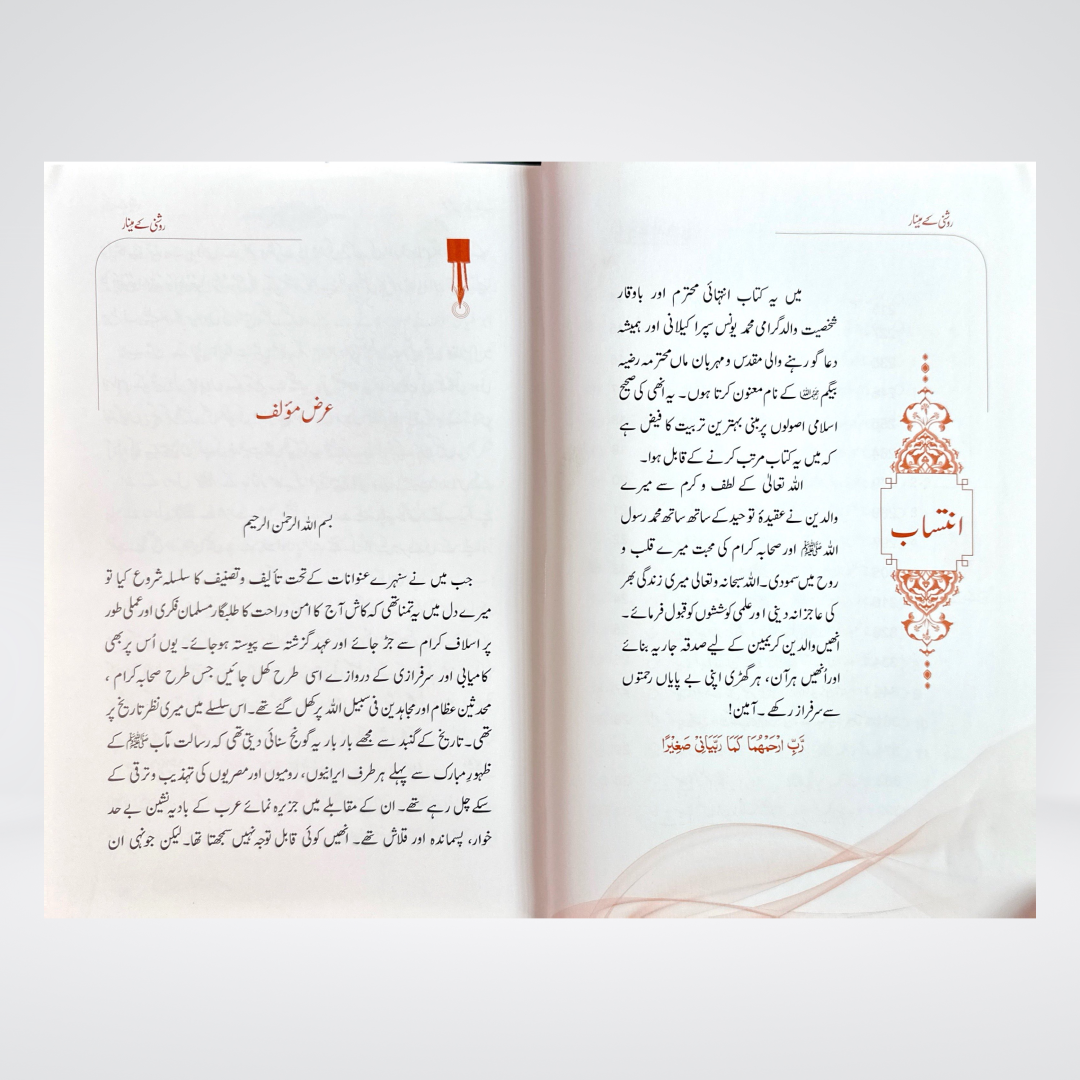 روشنی کے مینار
انتساب
میں یہ کتاب انتہائی محترم اور باوقار
شخصیت والد گرامی محمد یونس سپرا کیلانی اور ہمیشہ
دعا گو رہنے والی مقدس و مہربان ماں محترمہ رضیہ
بیگم کے نام معنون کرتا ہوں۔ یہ انھی کی صحیح
اسلامی اصولوں پر مبنی بہترین تربیت کا فیض ہے
کہ میں یہ کتاب مرتب کرنے کے قابل ہوا۔
اللہ تعالیٰ کے لطف و کرم سے میرے
والدین نے عقیدۂ توحید کے ساتھ ساتھ محمد رسول
اللہ ﷺ اور صحابہ کرام کی محبت میرے قلب و
روح میں سمو دی۔ اللہ سبحانہ وتعالی میری زندگی بھر
کی عاجزانہ دینی اور علمی کوششوں کو قبول فرمائے۔
انھیں والدین کریمین کے لیے صدقہ جاریہ بنائے
اور اُنھیں ہر آن، ہر گھڑی اپنی بے پایاں رحمتوں
سے سرفراز رکھے۔ آمین!
رَّبِّ ارْحَمْهُمَا كَمَا رَبَّيَانِيْ صَغِيْرًا
روشنی کے مینار
عرض مؤلف
بسم اللہ الرحمٰن الرحیم
جب میں نے سنہرے عنوانات کے تحت تألیف و تصنیف کا سلسلہ شروع کیا تو
میرے دل میں یہ تمنا تھی کہ کاش آج کا امن و راحت کا طلبگار مسلمان فکری اور عملی طور
پر اسلاف کرام سے جڑ جائے اور عہد گزشتہ سے پیوستہ ہو جائے۔ یوں اُس پر بھی
کامیابی اور سرفرازی کے دروازے اسی طرح کھل جائیں جس طرح صحابہ کرام ،
محدثین عظام اور مجاہدین فی سبیل اللہ پر کھل گئے تھے۔ اس سلسلے میں میری نظر تاریخ پر
تھی۔ تاریخ کے گنبد سے مجھے بار بار یہ گونج سنائی دیتی تھی کہ رسالت مآب ﷺ کے
ظہورِ مبارک سے پہلے ہر طرف ایرانیوں، رومیوں اور مصریوں کی تہذیب و ترقی کے
سکے چل رہے تھے۔ ان کے مقابلے میں جزیرہ نمائے عرب کے بادیہ نشین بے حد
خوار، پسماندہ اور قلاش تھے۔ انھیں کوئی قابل توجہ نہیں سمجھتا تھا۔ لیکن جونہی ان